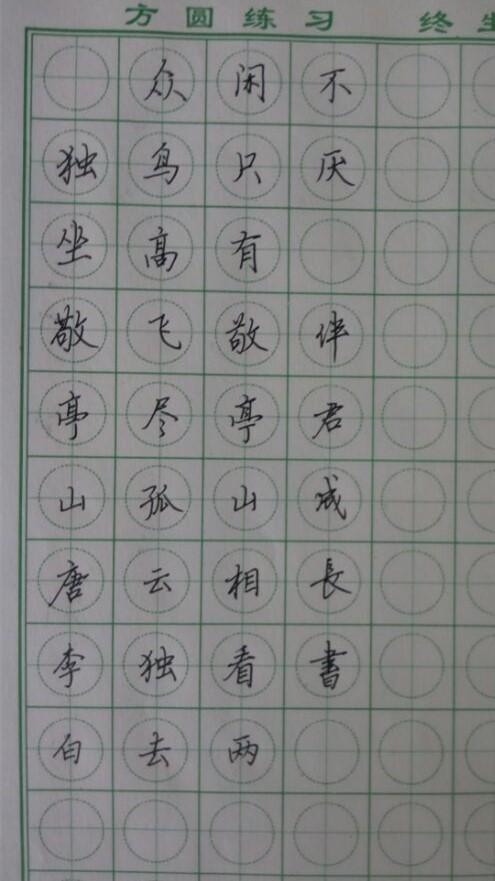 方圆练习 终生
独坐敬亭山唐李白
众鸟高飞尽孤云独去
闲只有敬亭山相看两
不厌 伴君成長書